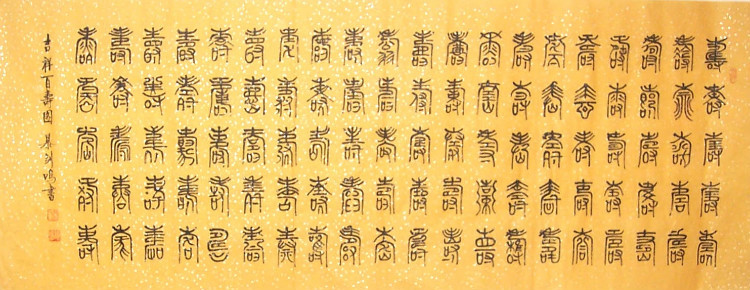 壽壽壽壽壽
壽壽壽壽壽
壽壽壽壽壽
壽壽壽壽壽
壽壽壽壽壽
壽壽壽壽壽
壽壽壽壽壽
壽壽壽壽壽
壽壽壽壽壽
壽壽壽壽壽
壽壽壽壽壽
壽壽壽壽壽
壽壽壽壽壽
壽壽壽壽壽
壽壽壽壽壽
壽壽壽壽壽
壽壽壽壽壽
壽壽壽壽壽
壽壽壽壽壽
壽壽壽壽壽
吉祥百寿图 書